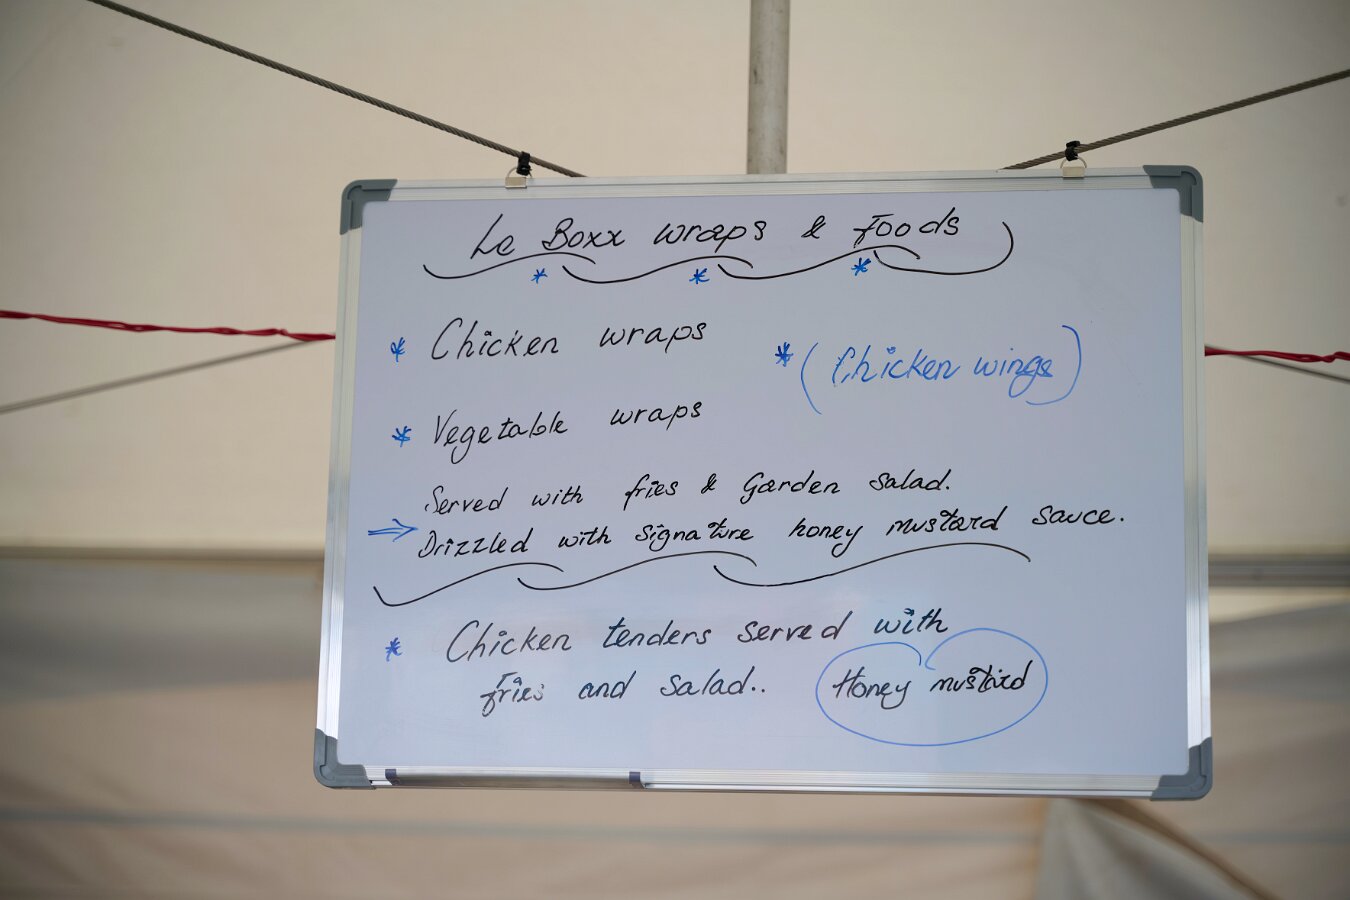 Le Boxx wraps & foods
* * *
* Chicken wraps
* (Chicken wings)
* Vegetable wraps
Served with fries & Garden salad.
⇒ Drizzled with signature honey mustard sauce.
* Chicken tenders served with
fries and salad..
Honey mustard